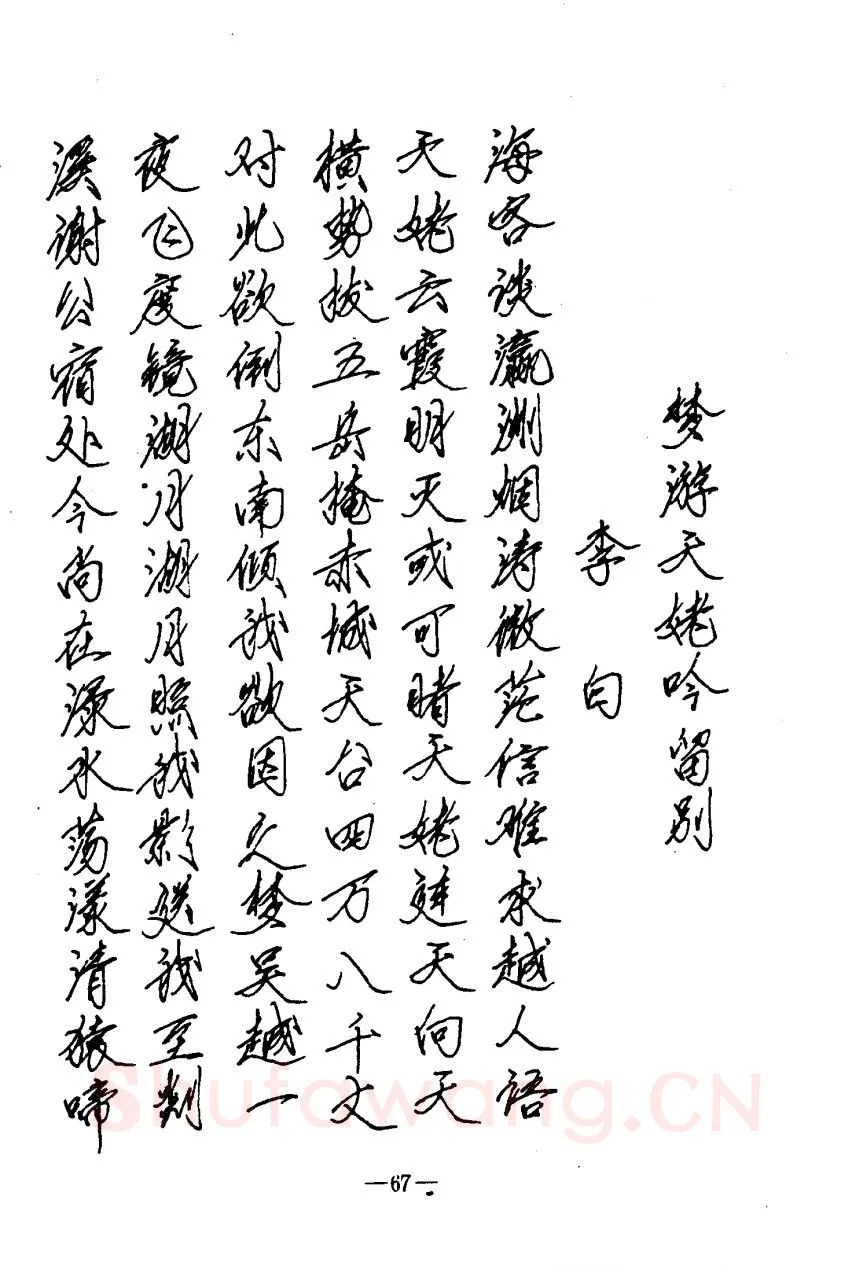 梦游天姥吟留别
李白
海客谈瀛洲烟涛微茫信难求越人语
天姥云霞明灭或可睹天姥连天向天
横势拔五岳掩赤城天台四万八千丈
对此欲倒东南倾我欲因之梦吴越一
夜飞度镜湖月湖月照我影送我至剡
溪谢公宿处今尚在渌水荡漾清猿啼
Shufawang.CN
—67—